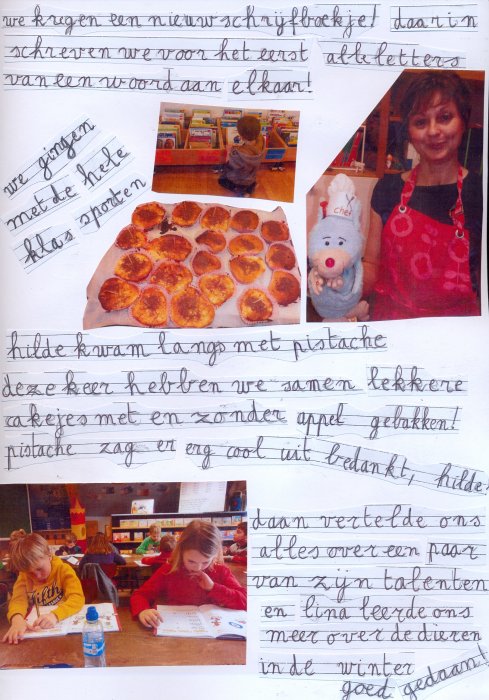 we krygen een nieuw schrijfboekje! daarin
schreven we voor het eerst alle letters
van een woord aan elkaar!
we gingen
met de hele
klas sporten
chef
hilde kwam langs met pistache
deze keer hebben we samen lekkere
cakejes met en zonder appel gebakken!
pistache zag er erg cool uit bedankt, hilde!
daan vertelde ons
alles over een paar
van zijn talenten
en lina leerde ons
meer over de dieren
in de winter
goed gedaan!